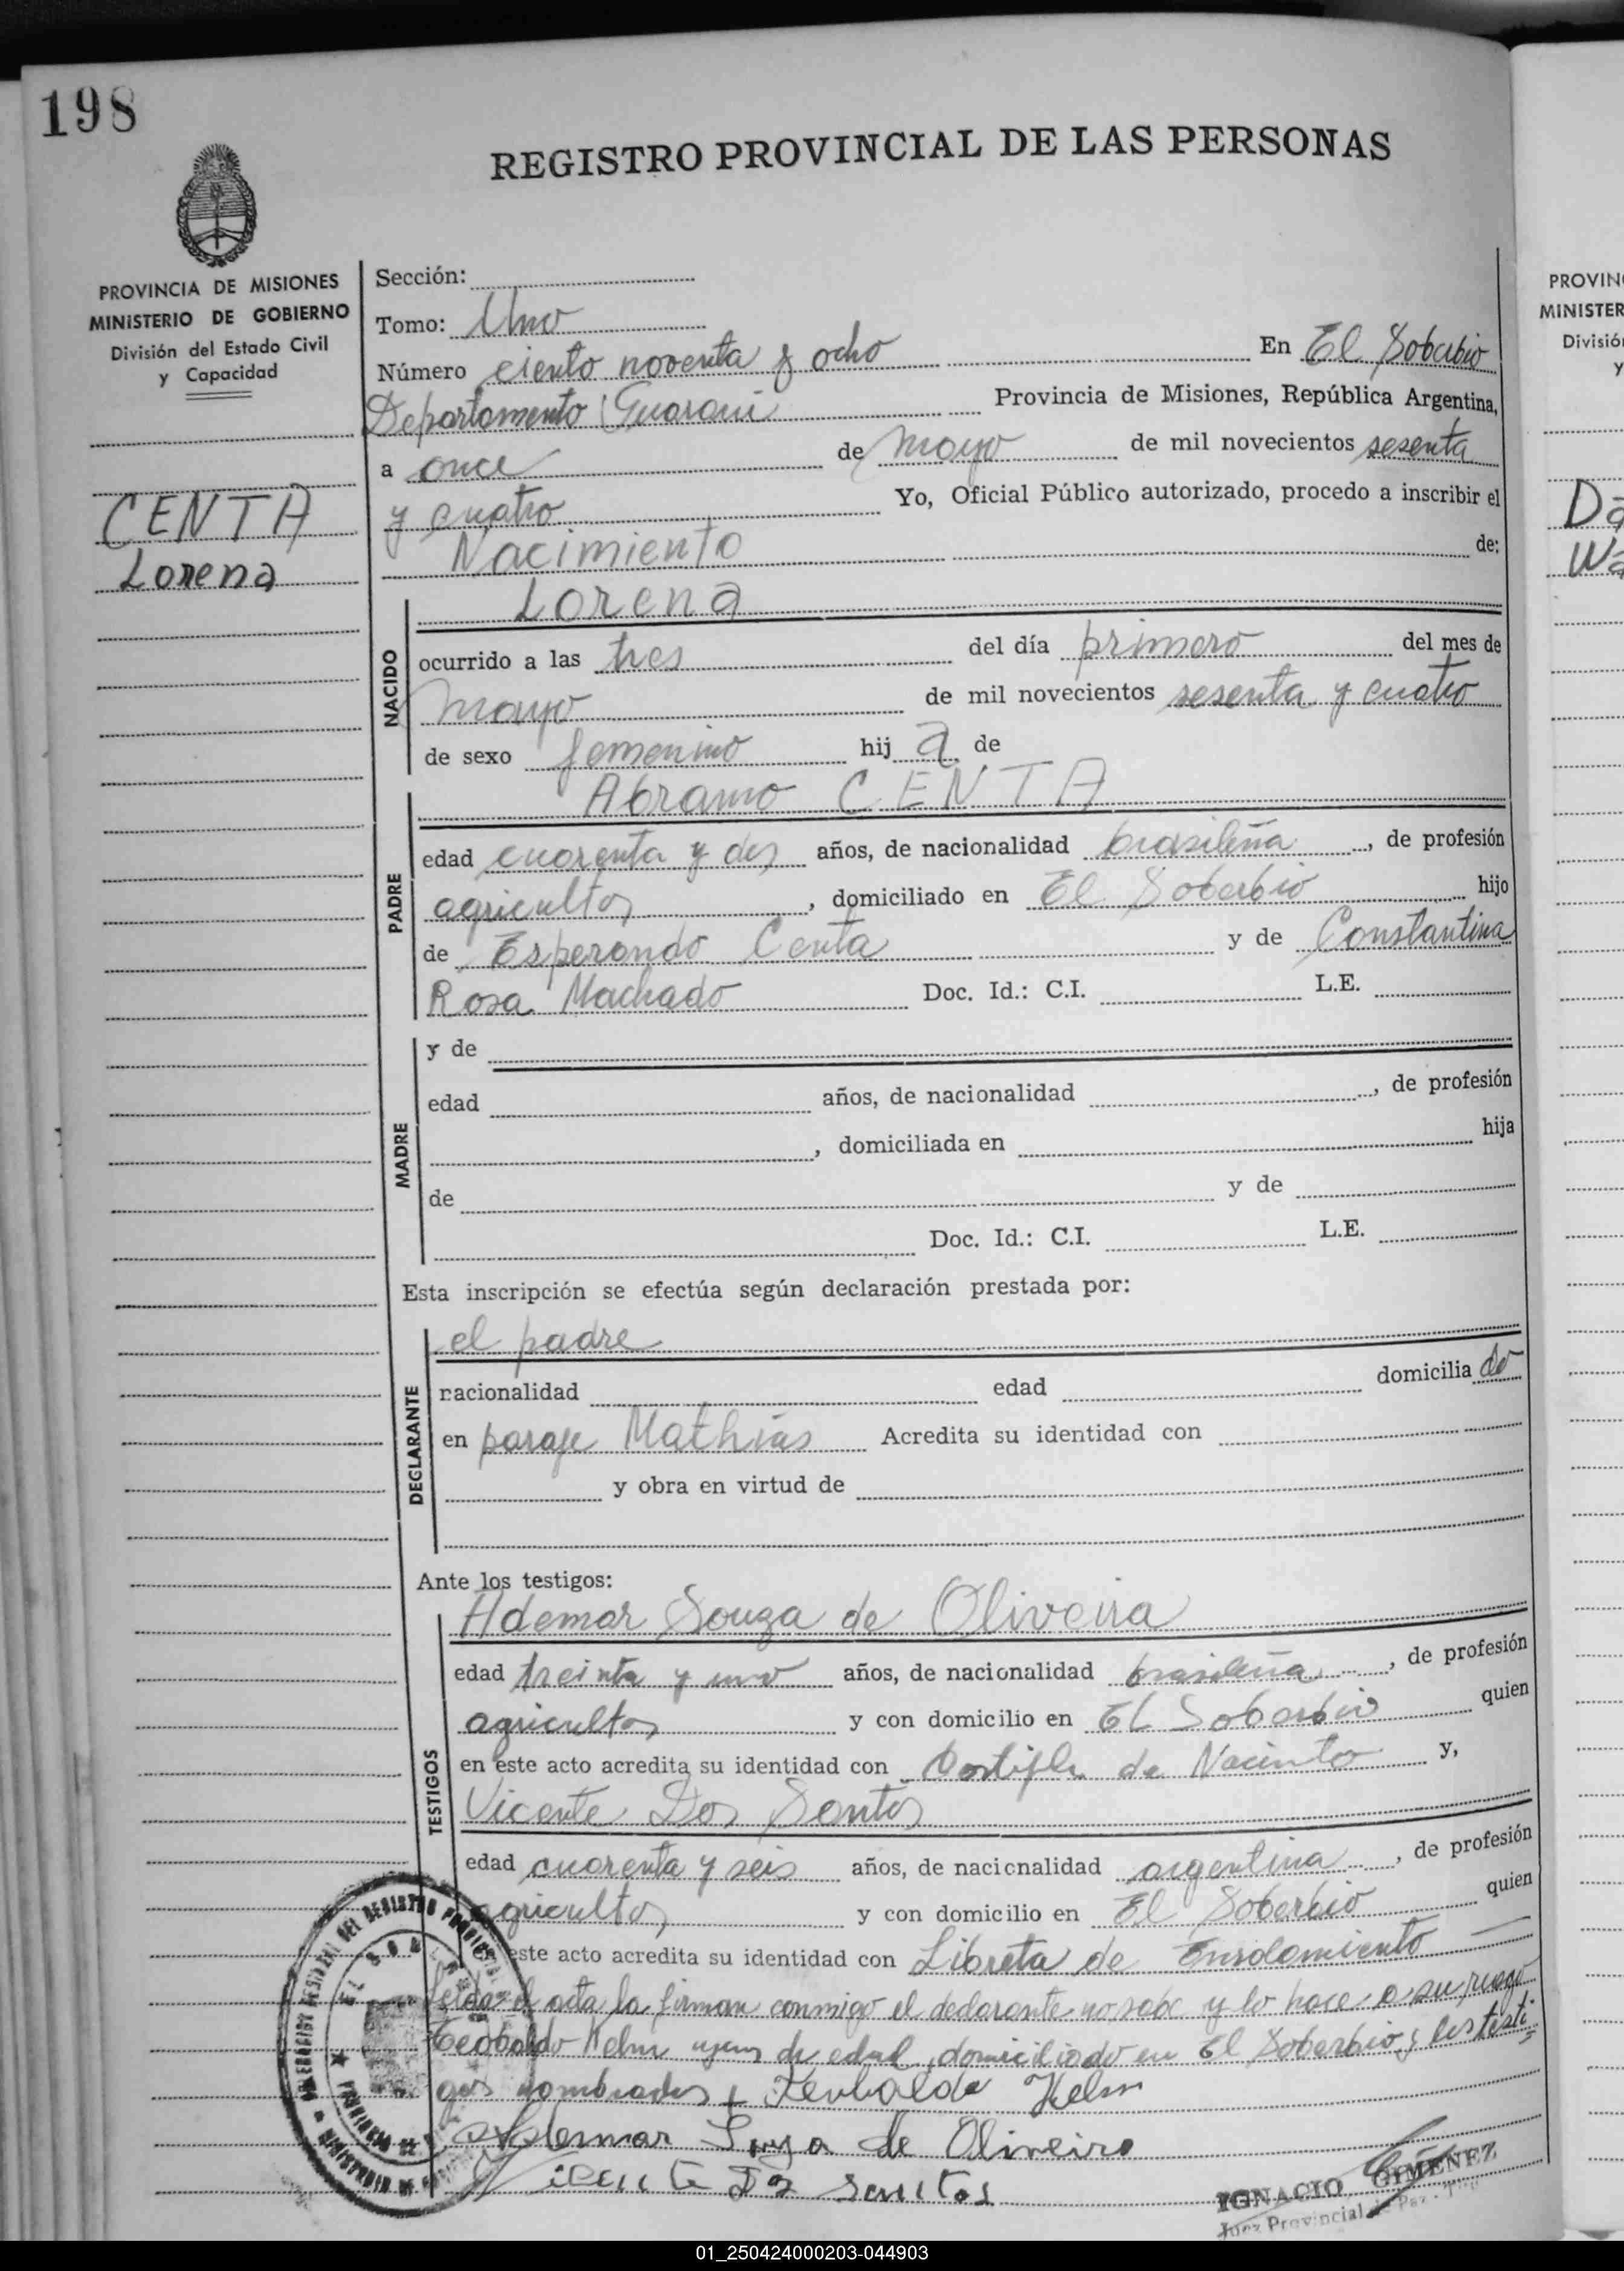 198
REGISTRO PROVINCIAL DE LAS PERSONAS
PROVINCIA DE MISIONES
MINISTERIO DE GOBIERNO
División del Estado Civil
y Capacidad
CENTA
Lorena
Sección:
Tomo: Uno
Número ciento noventa y ocho En El Soberbio
Departamento Guaraní Provincia de Misiones, República Argentina,
a once de mayo de mil novecientos sesenta
y cuatro Yo, Oficial Público autorizado, procedo a inscribir el
Nacimiento de:
Lorena
NACIDO
ocurrido a las tres del día primero del mes de
mayo de mil novecientos sesenta y cuatro
de sexo femenino hij a de
Abramo CENTA
PADRE
edad cuarenta y dos años, de nacionalidad brasileña, de profesión
agricultor, domiciliado en El Soberbio hijo
de Esperando Centa y de Constantina
Rosa Machado Doc. Id.: C.I. L.E.
MADRE
y de
edad años, de nacionalidad , de profesión
, domiciliada en hija
de y de
Doc. Id.: C.I. L.E.
Esta inscripción se efectúa según declaración prestada por:
el padre
DECLARANTE
nacionalidad edad domicilia do
en paraje Mathias Acredita su identidad con
y obra en virtud de
Ante los testigos:
Ademar Souza de Oliveira
TESTIGOS
edad treinta y uno años, de nacionalidad brasileña, de profesión
agricultor y con domicilio en El Soberbio quien
en este acto acredita su identidad con de Nacimto y,
Vicente Dos Santos
edad cuarenta y seis años, de nacionalidad argentina, de profesión
agricultor y con domicilio en El Soberbio quien
en este acto acredita su identidad con Libreta de Enrolamiento
Leída el acta la firman conmigo el declarante no sabe y lo hace a su ruego
Teobaldo Helm de edad, domiciliado en El Soberbio y los testi=
gos nombrados Teobaldo Helm
Ademar Souza de Oliveira
Vicente Dos Santos
IGNACIO GIMENEZ
Juez Provincial de Paz
PROVIN
MINISTER
Divisió
y
Da
Wa
01_250424000203-044903